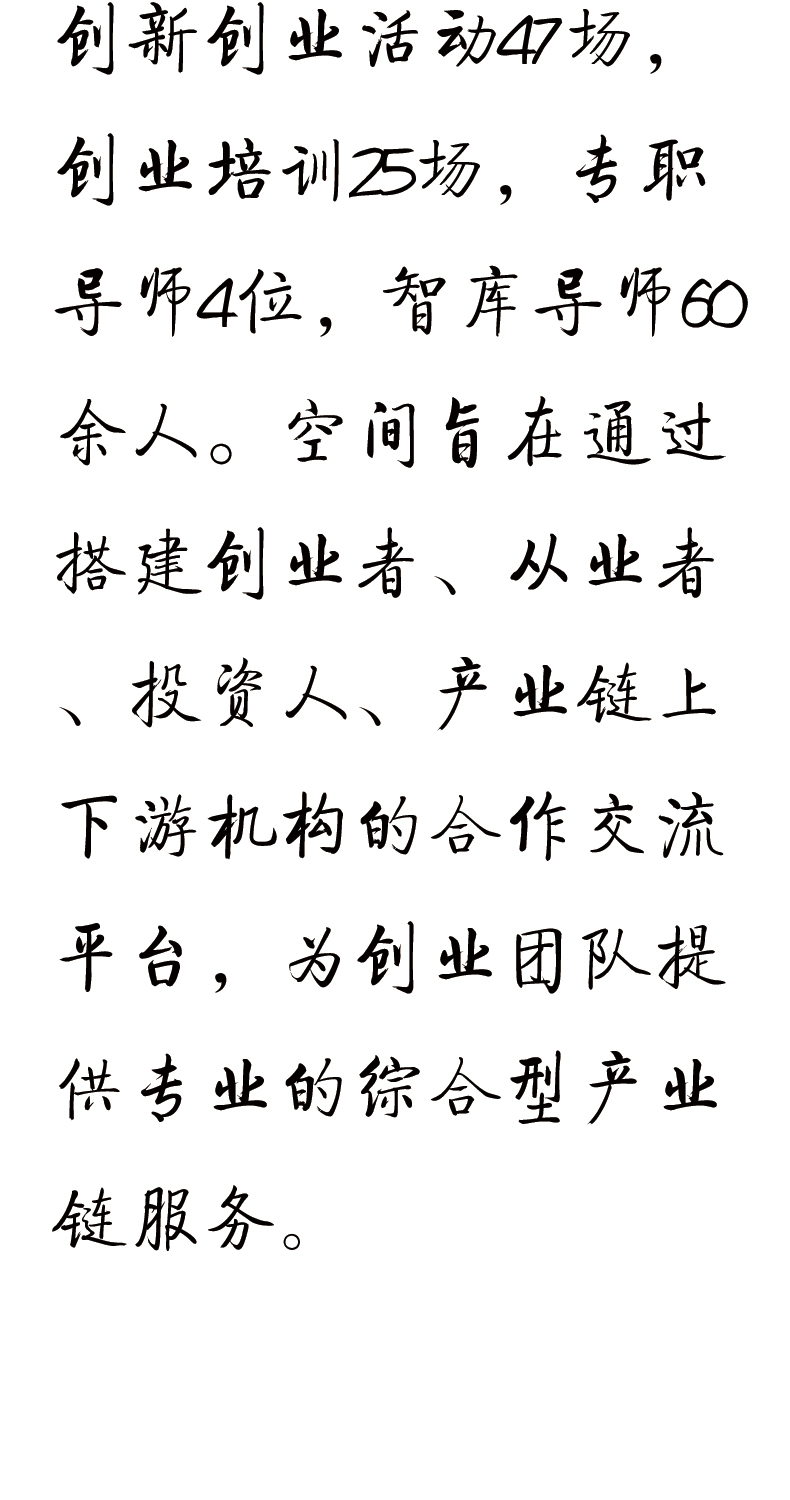 创新创业活动47场，
创业培训25场，专职
导师4位，智库导师60
余人。空间旨在通过
搭建创业者、从业者
、投资人、产业链上
下游机构的合作交流
平台，为创业团队提
供专业的综合型产业
链服务。